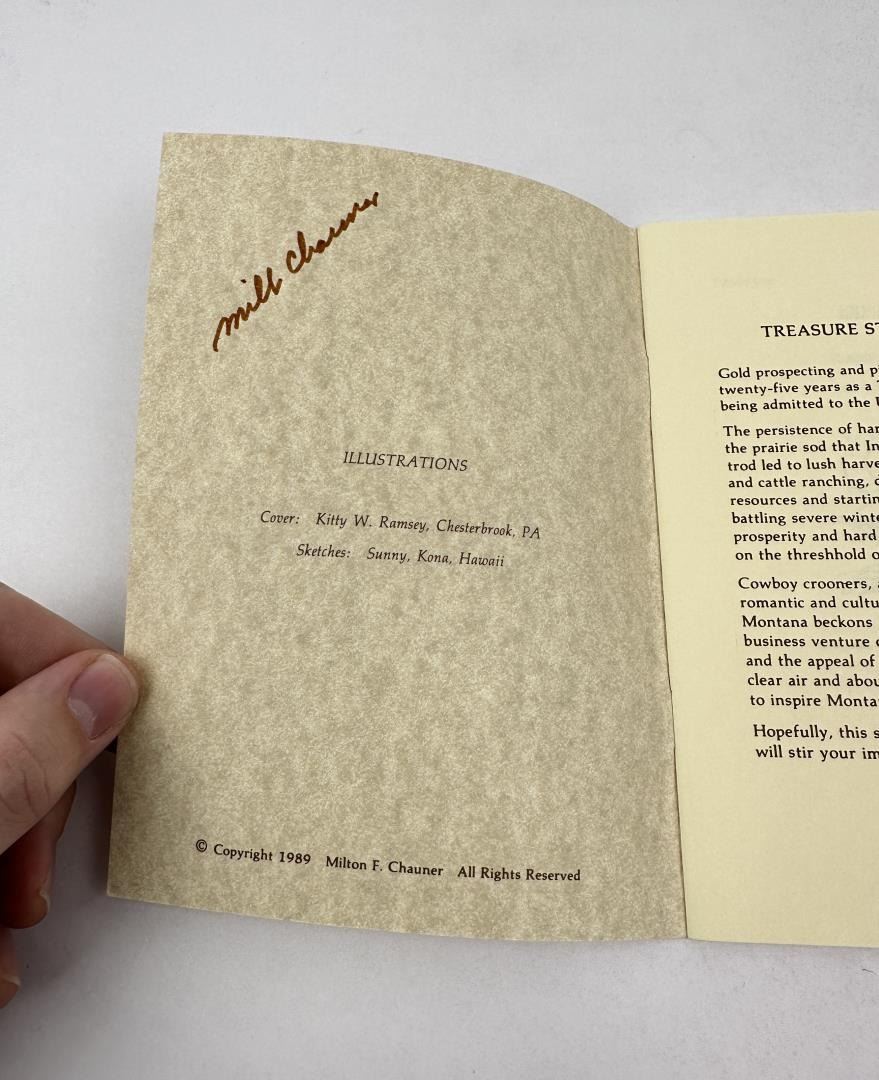 Milt Chauner
ILLUSTRATIONS
Cover: Kitty W. Ramsey, Chesterbrook, PA
Sketches: Sunny, Kona, Hawaii
© Copyright 1989 Milton F. Chauner All Rights Reserved
TREASURE
Gold prospecting and
twenty-five years as a
being admitted to the
The persistence of
the prairie sod that
trod led to lush
and cattle ranching,
resources and
battling severe
prosperity and hard
on the threshhold
Cowboy crooners,
romantic and
Montana beckons
business venture
and the appeal of
clear air and
to inspire
Hopefully, this
will stir your